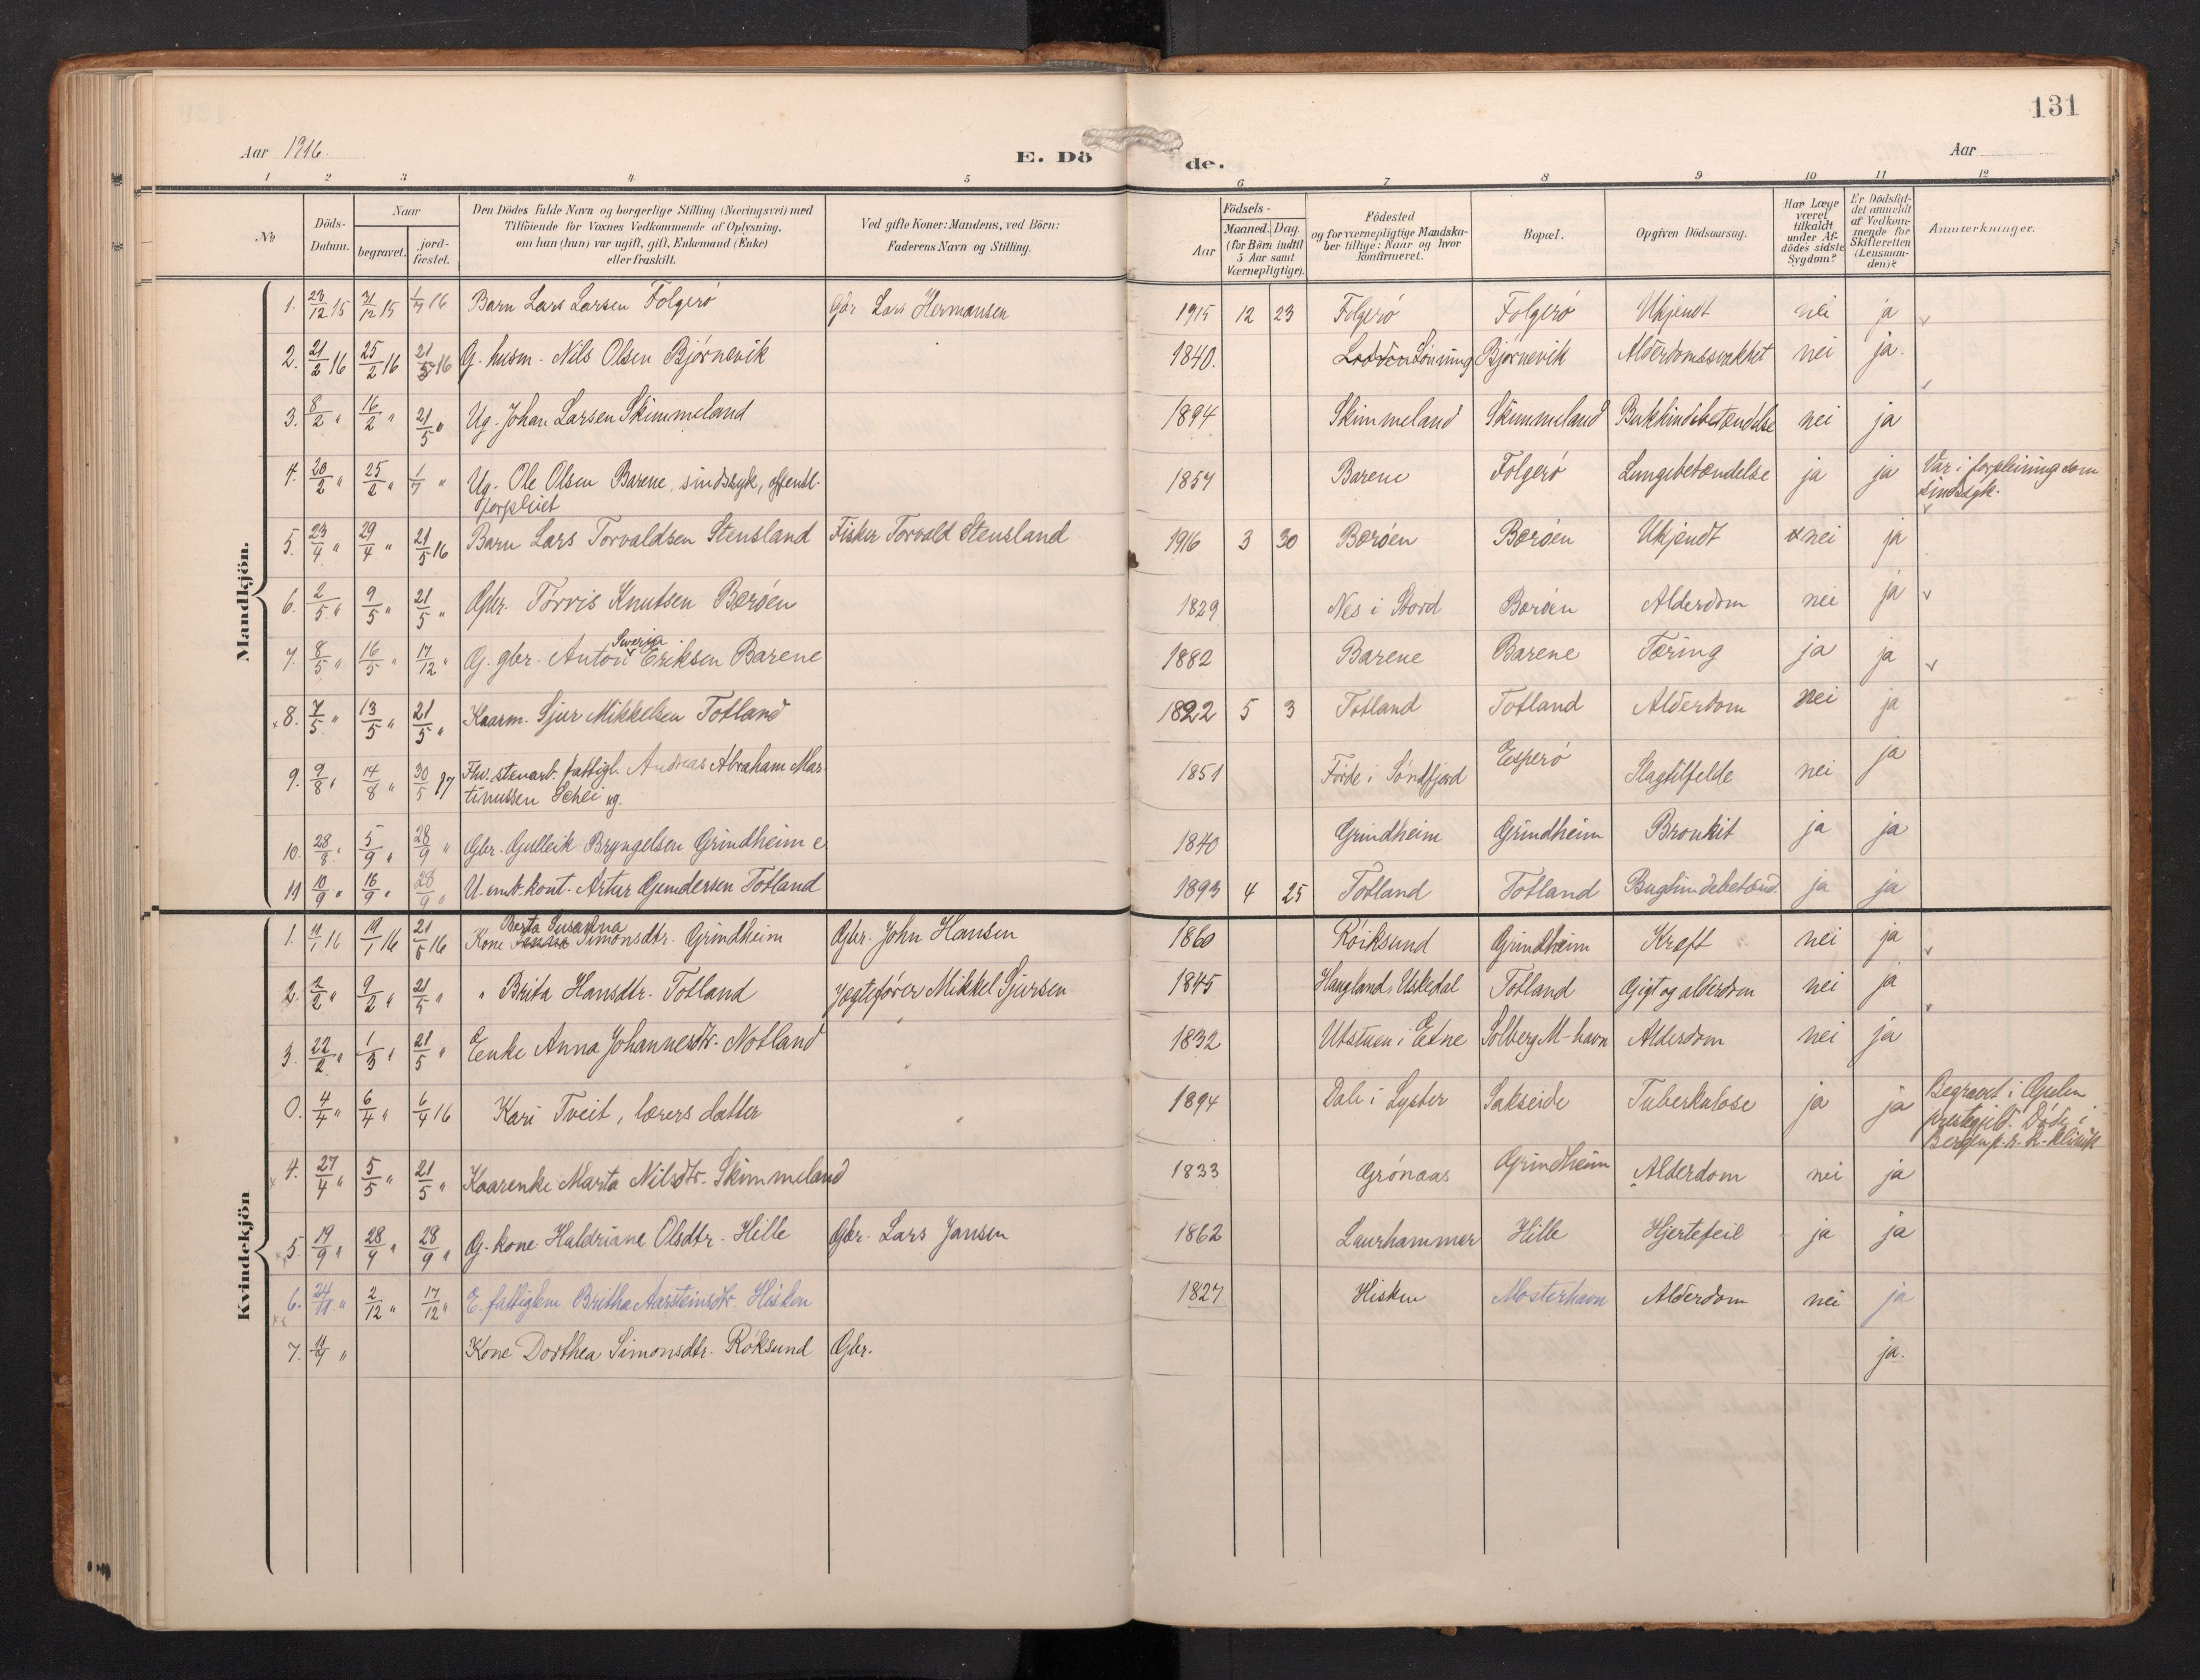 131
Aar 1916.
E. Dö de.
Aar
1 2 3 4 5 6 7 8 9 10 11 12
No
Döds-
Datum.
Naar
begravet.
jord-
fæstet.
Den Dödes fulde Navn og borgerlige Stilling (Næringsvei) med
Tilföiende for Voxnes Vedkommende af Oplysning,
om han (hun) var ugift, gift, Enkemand (Enke)
eller fraskilt.
Ved gifte Koner: Mandens, ved Börn:
Faderens Navn og Stilling.
Födsels-
Aar
Maaned. Dag.
(for Börn indtil
5 Aar samt
Værnepligtige).
Födested
og for værnepligtige Mandska-
ber tillige: Naar og hvor
konfirmeret.
Bopæl.
Opgiven Dödsaarsag.
Har Læge
været
tilkaldt
under Af-
dödes sidste
Sygdom?
Er Dödsfal-
det anmeldt
af Vedkom-
mende for
Skifteretten
(Lensman-
den)?
Anmerkninger.
Mandkjön.
1. 23/12 15 31/12 15 1/7 16 Barn Lars Larsen Folgerö Gbr Lars Hermansen 1915 12 23 Folgerö Folgerö Ukjendt nei ja
2. 21/2 16 25/2 16 21/5 16 G. husm. Nils Olsen Bjørnevik 1840. Lönning Bjørnevik Alderdomssvakhet nei ja.
3. 8/2 " 16/2 " 21/5 " Ug. Johan Larsen Skimmeland 1894 Skimmeland Skimmeland Bukhindebetændelse nei ja
4. 20/2 " 25/2 " 1/7 " Ug. Ole Olsen Barene, sindssyk, offentl. 1857 Barene Folgerö Lungebetændelse ja ja Var i forpleining som
forpleiet sindssyk.
5. 23/4 " 29/4 " 21/5 16 Barn Lars Torvaldsen Stensland Fisker Torvald Stensland 1916 3 30 Børøen Børøen Ukjendt nei ja
6. 2/5 " 9/5 " 21/5 " Gbr. Torris Knutsen Børøen 1829 Nes i Stord Børøen Alderdom nei ja
Sverja
7. 8/5 " 16/5 " 17/12 " G. gbr. Anton Eriksen Barene 1882 Barene Barene Tæring ja ja
8. 7/5 " 13/5 " 21/5 " Kaarm. Sjur Mikkelsen Totland 1822 5 3 Totland Totland Alderdom nei ja
9. 9/8 " 14/8 " 30/5 17 Fhv. stenarb. fattigl. Andreas Abraham Mar- 1851 Förde i Söndfjord Esperö Slagtilfelde nei ja
tinussen Schei ug.
10. 28/8 " 5/9 " 28/9 " Gbr. Gulleik Bryngelsen Grindheim e 1840 Grindheim Grindheim Bronkit ja ja
11 10/9 " 16/9 " 28/9 " U. emb. kont. Artur Gundersen Totland 1893 4 25 Totland Totland Bughindebetænd. ja ja
Kvindekjön
Berta Susanna
1. 11/1 16 19/1 16 21/5 16 Kone Simonsdtr. Grindheim Gbr. John Hansen 1860 Röiksund Grindheim Kreft nei ja
2. 2/2 " 9/2 " 21/5 " " Brita Hansdtr. Totland Jægtefører Mikkel Sjursen 1845 Haugland, Uskedal Totland Gigt og alderdom nei ja
3. 22/2 " 1/3 " 21/5 " Enke Anna Johannesdtr. Notland 1832 Utstuen i Etne Solberg M-havn Alderdom nei ja
0. 4/4 " 6/4 " 6/4 16 Kari Tveit, lærers datter 1894 Dale i Lyster Sakseide Tuberkulose ja ja Begravet i Gulen
prestegjeld. Döde i
Bergen
4. 27/4 " 5/5 " 21/5 " Kaarenke Marta Nilsdtr. Skimmeland 1833 Grönaas Grindheim Alderdom nei ja
5. 19/9 " 28/9 " 28/9 " G. kone Haldriane Olsdtr. Hille Gbr. Lars Jansen 1862 Laurhammer Hille Hjertefeil ja ja
6. 24/11 " 2/12 " 17/12 " E. fattiglem Britha Aarsteinsdtr. Hisken 1827 Hisken Mosterhavn Alderdom nei ja
7. " Kone Dorthea Simonsdtr. Röksund Gbr. ja.